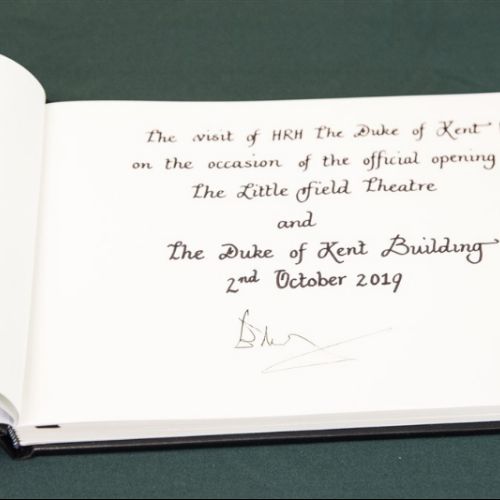 The visit of HRH The Duke of Kent
on the occasion of the official opening
The Little Field Theatre
and
The Duke of Kent Building
2nd October 2019